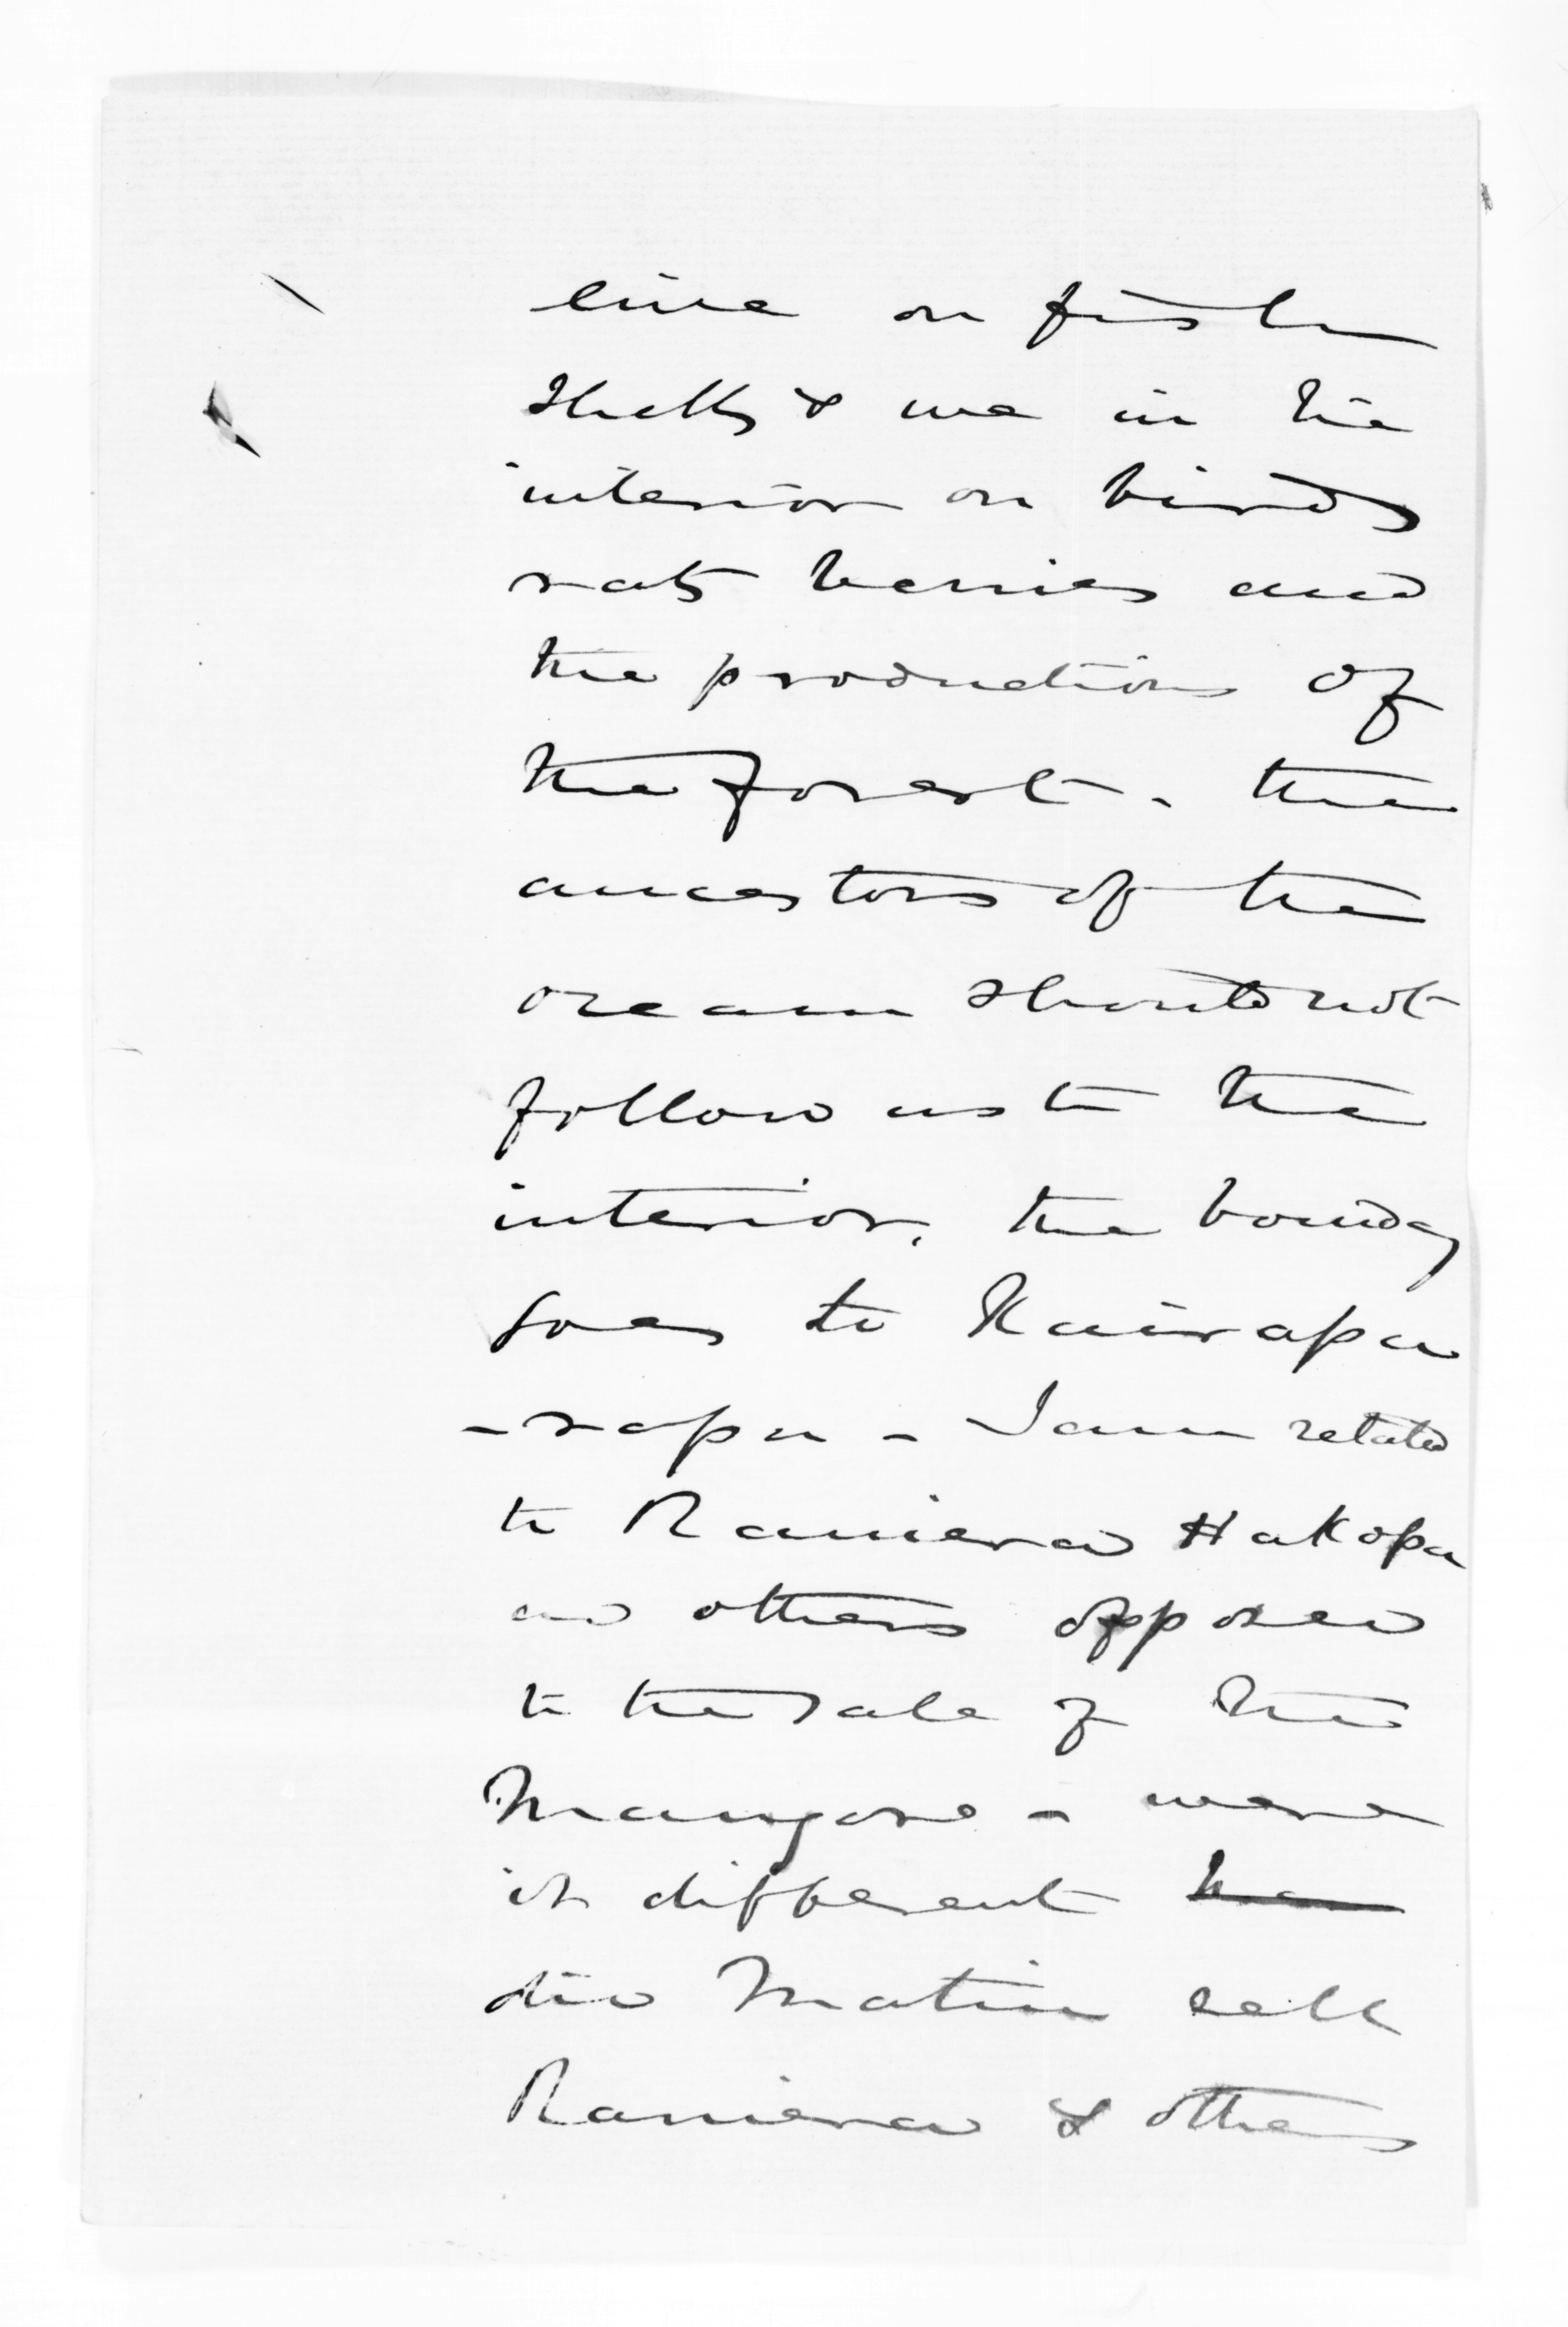 live on fish
shells & we in the
interior on birds
rats berries and
the productions of
the forest - the
ancestors of the
ocean should not
follow us to the
interior. the bounday
goes to Kairapa
-rapa - I am related
to Raniera Hakopa
and others opposed
to the sale of the
Mangore - were
it different
did Matiu sell
Raniera & others